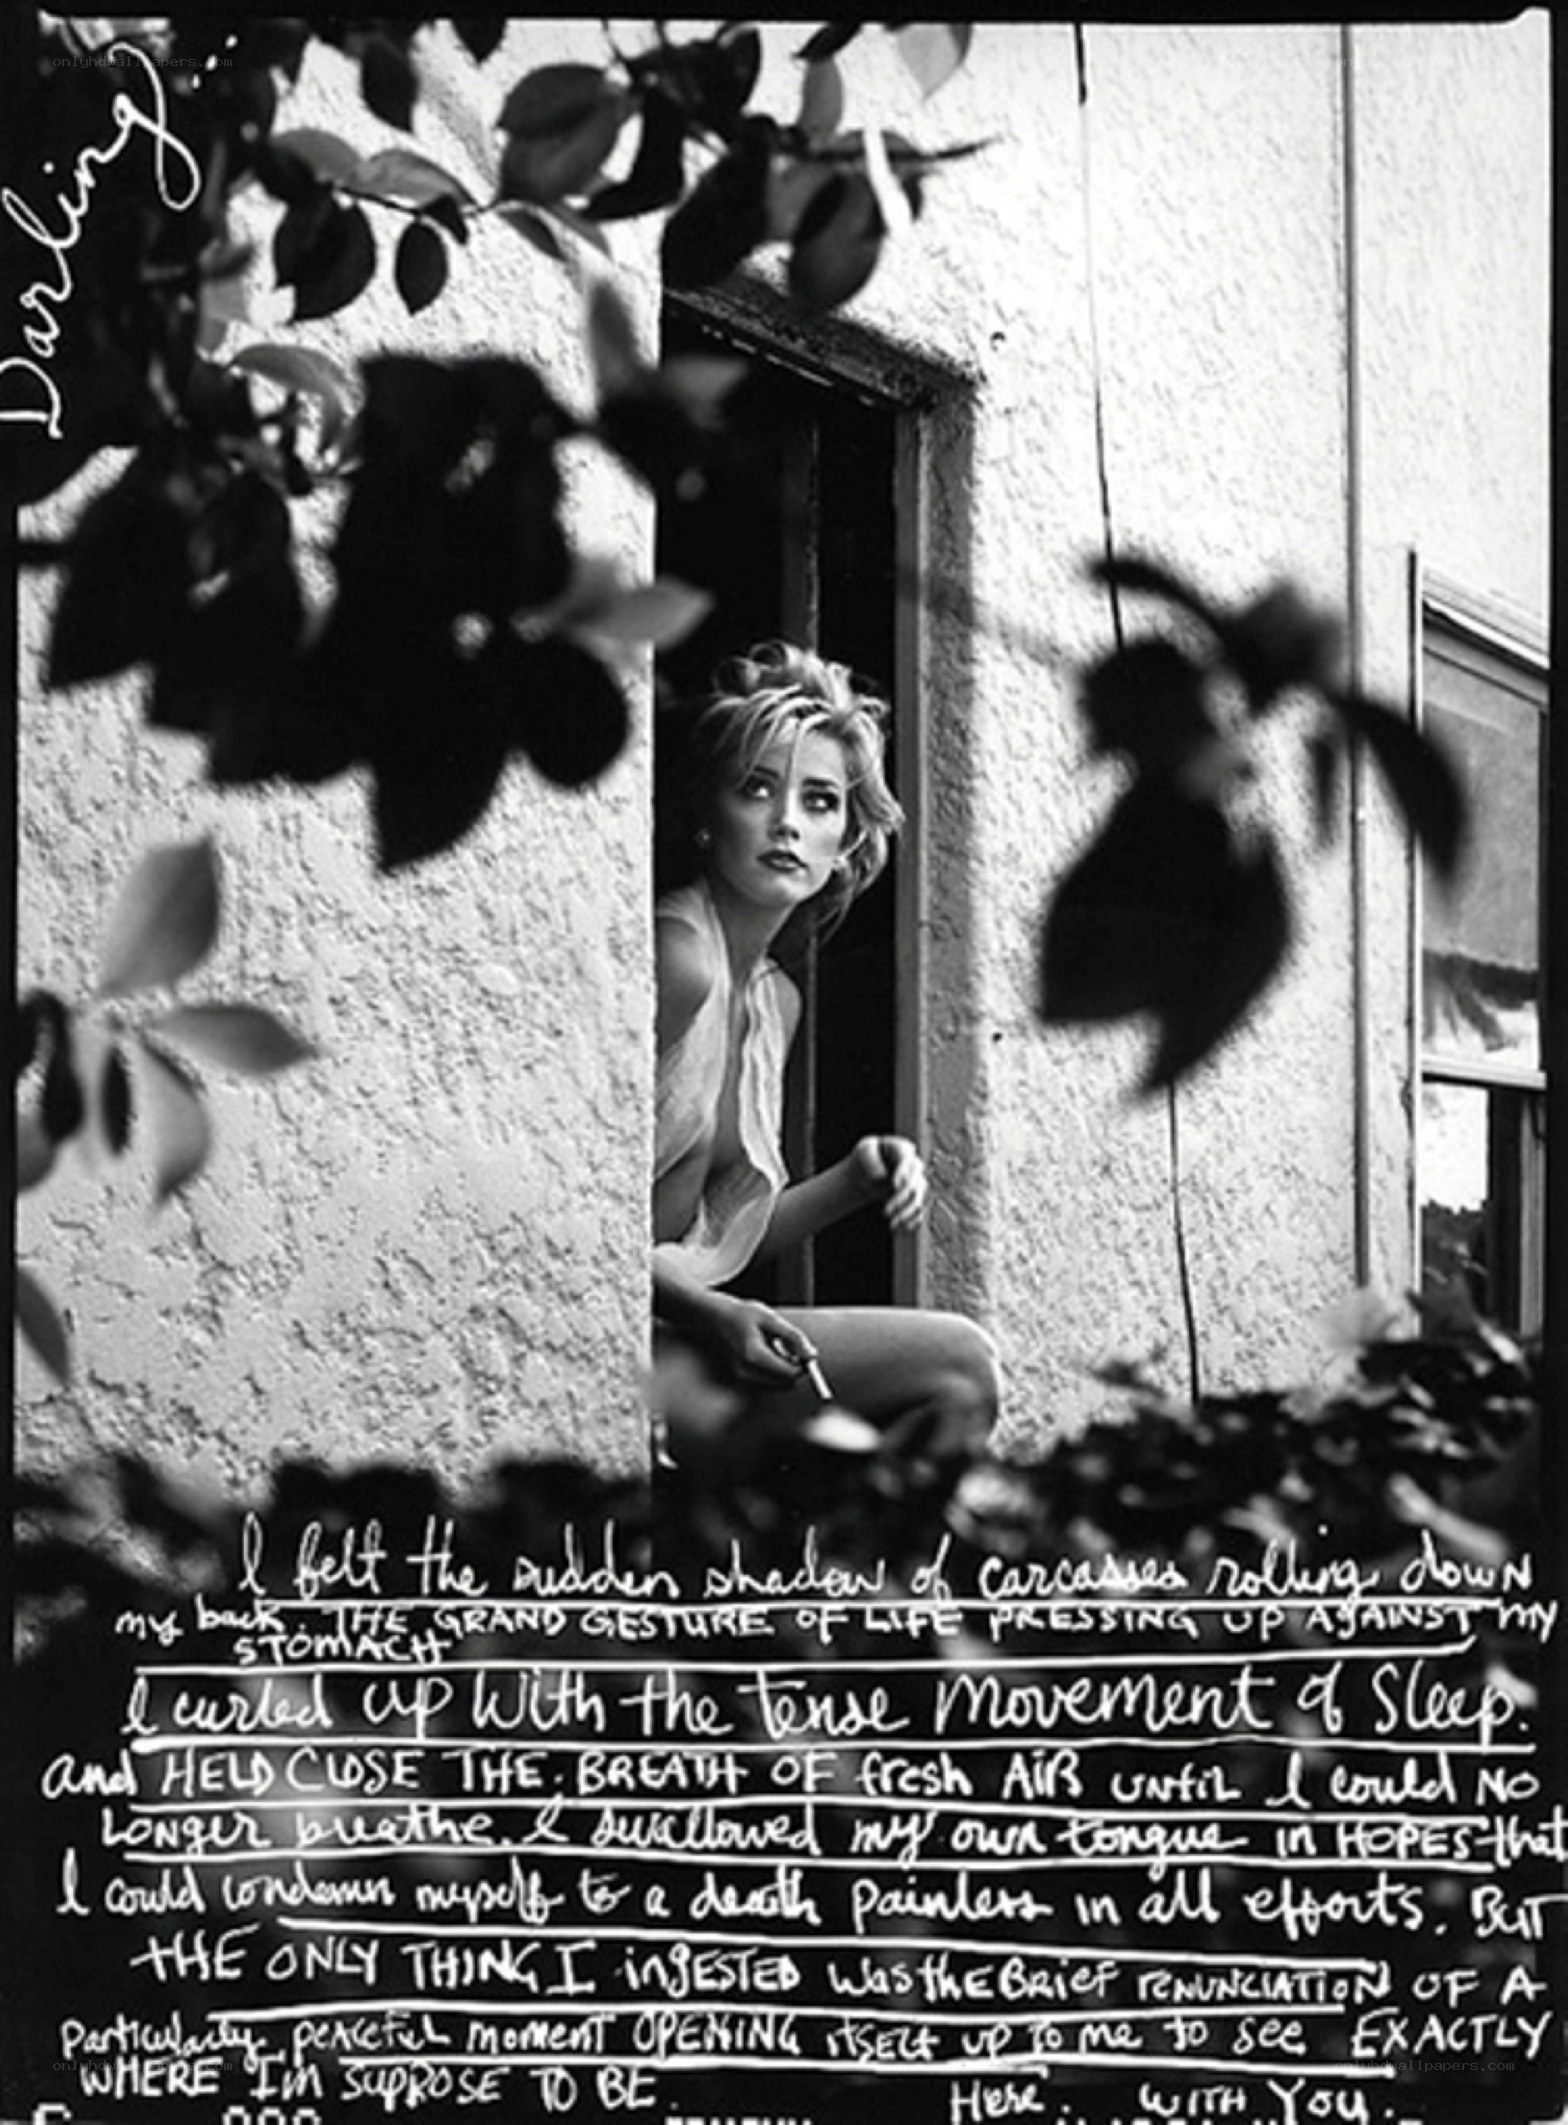 onlyhdwallpapers.com
Darling...
I felt the sudden shadow of carcasses rolling down
my back. THE GRAND GESTURE OF LIFE PRESSING UP AGAINST MY
STOMACH
I curled up With the Tense Movement of Sleep.
and HELD CLOSE THE. BREATH OF fresh AIR UNTIL I could NO
LONGER breathe. I swallowed my own tongue in HOPES that
I could condemn myself to a death painless in all efforts. BUT
THE ONLY THING I INGESTED WAS THE BRIEF RENUNCIATION OF A
Particularly peaceful moment OPENING itself up to me to see EXACTLY
WHERE I'm SUPPOSE TO BE.
Here. WITH YOU.
onlyhdwallpapers.com
onlyhdwallpapers.com